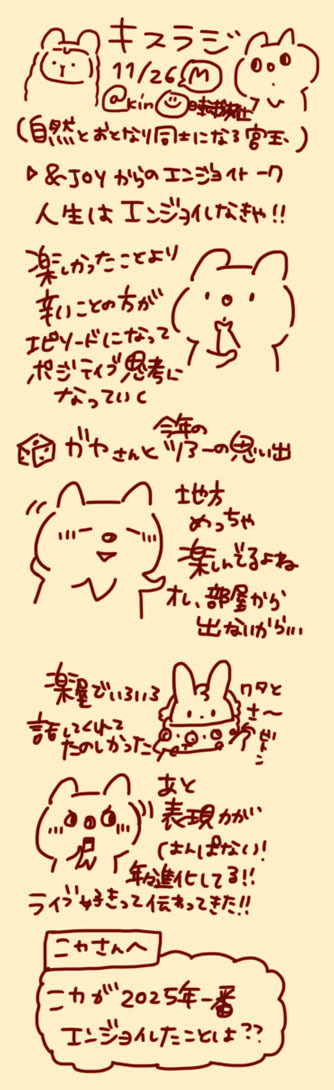 キスラジ
11/26 M
@kin 時事放社
(自然とおとなり同士になる宮玉、)
▷ &JOYからのエンジョイトーク
人生はエンジョイしなきゃ!!
楽しかったことより
辛いことの方が
エピソードになって
ポジティブ思考に
なっていく
ガヤさんと今年のツアーの思い出
地方
めっちゃ
楽しんでるよね
オレ、部屋から
出ないから...
楽屋でいろいろ
話してくれて
たのしかった
ワタと
さ〜
あと
表現力が
はんぱない!
年々進化してる!!
ライブ好きって伝わってきた!!
ニカさんへ
ニカが2025年一番
エンジョイしたことは??